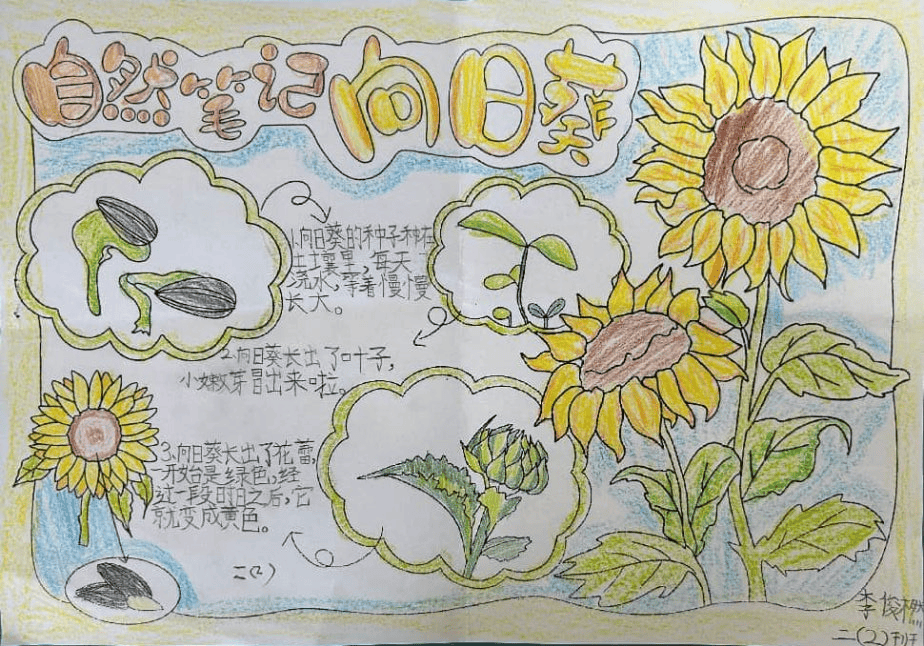 自然笔记向日葵
1.向日葵的种子种在
土壤里,每天
浇水,等着慢慢
长大。
2.向日葵长出了叶子,
小嫩芽冒出来啦。
3.向日葵长出了花蕾,
开始是绿色,经
过一段时日之后,它
就变成黄色。
二(2)
李俊
二(2)班